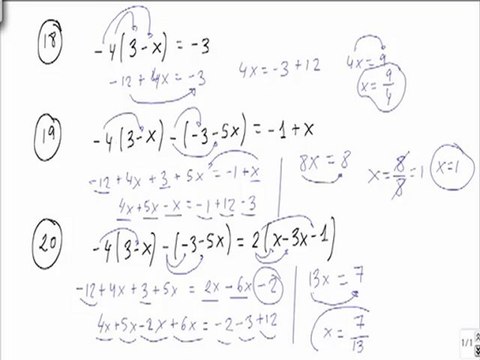 18 -4(3-x) = -3
-12+4x = -3 4x = -3+12 4x = 9
x = 9/4
19 -4(3-x) -(-3-5x) = -1+x
-12+4x+3+5x = -1+x 8x = 8 x = 8/8 = 1 x=1
4x+5x-x = -1+12-3
20 -4(3-x) -(-3-5x) = 2(x-3x-1)
-12+4x+3+5x = 2x-6x-2 13x = 7
4x+5x-2x+6x = -2-3+12 x = 7/13
1/1